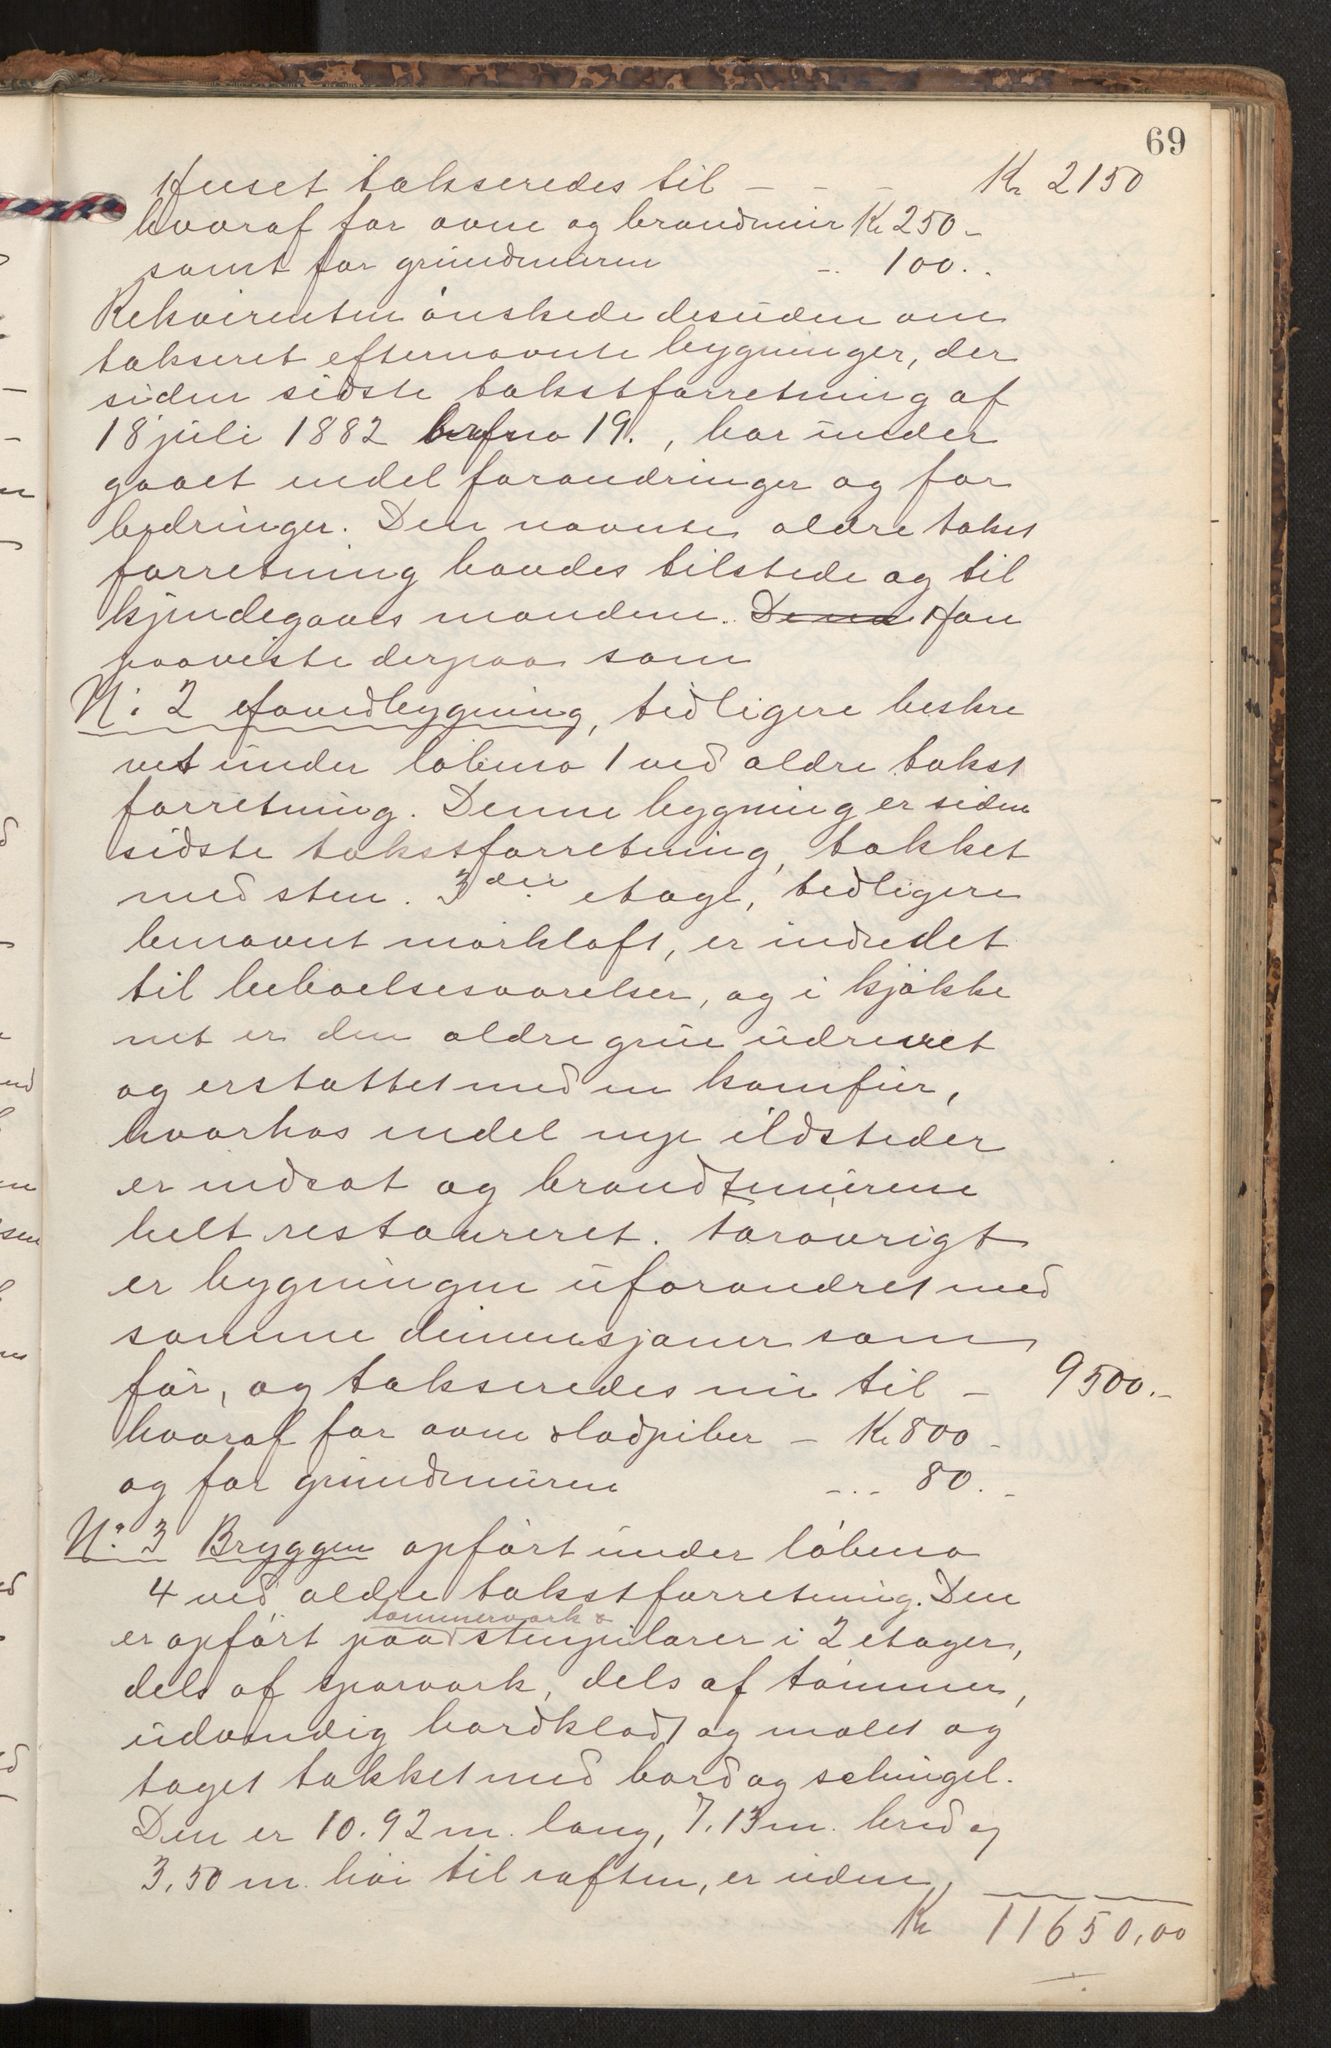 69
Huset takseredes til — — — Kr 2150
hvoraf for ovne og brandmur Kr 250 –
samt for grundmuren –. 100 . .
Rekvirenten ønskede desuden om
takseret efternævnte bygninger, der
siden sidste takstforretning af
18 juli 1882 no 19., har under
gaaet endel forandringer og for
bedringer. Den nævnte ældre takst
forretning havdes tilstede og til
kjendegaves mændene. Han
paaviste derpaa som
No: 2 Hovedbygning, tidligere beskre
vet under løbeno 1 ved ældre takst
forretning. Denne bygning er siden
sidste takstforretning, tækket
med sten. 3die etage, tidligere
benævnt mørkloft, er indredet
til beboelsesværelser, og i kjøkke
net er den ældre grue udrevet
og erstattet med en komfur,
hvorhos endel nye ildsteder
er indsat og brandmurene
helt restaureret. Forøvrigt
er bygningen uforandret med
samme dimensjoner som
før, og takseredes nu til – 9500.–
hvoraf for ovne & ladpiber – Kr 800 –
og for grundmuren –.. 80. –
No. 3 Bryggen opført under løbeno
4 ved ældre takstforretning. Den
tømmerværk &
er opført paa stenpilarer i 2 etager,
dels af sparværk, dels af tømmer,
udvendig bordklædt og malet og
taget tækket med bord og schingel.
Den er 10.92 m. lang, 7.13 m. bred og
3,50 m. høi til raften, er uden
Kr 11650,00